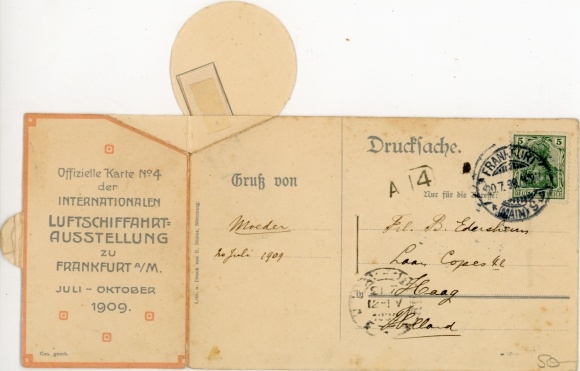 Offizielle Karte No 4
der
INTERNATIONALEN
LUFTSCHIFFAHRT-
AUSSTELLUNG
ZU
FRANKFURT A/M.
JULI – OKTOBER
1909.
Ges. gesch.
Gruß von
Moeder
20 Juli 1909
Drucksache.
Nur für die
A 4
5 5
FRANKFURT
(MAIN)
Frl. B. Edersheim
Laan Copes
Haag
Holland
50